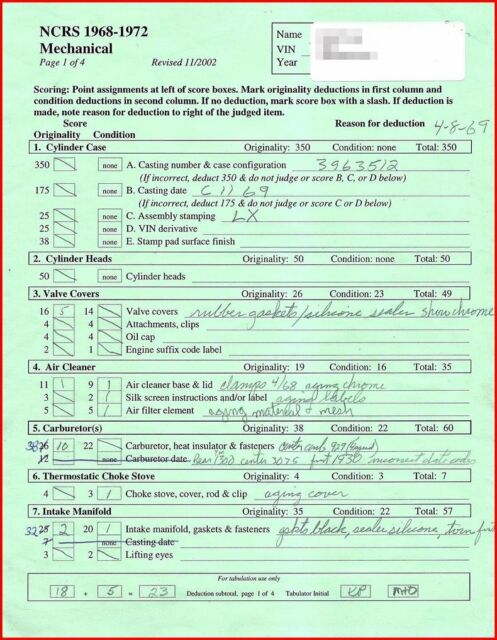 NCRS 1968-1972
Mechanical
Page 1 of 4 Revised 11/2002
Name
VIN
Year
Scoring: Point assignments at left of score boxes. Mark originality deductions in first column and
condition deductions in second column. If no deduction, mark score box with a slash. If deduction is
made, note reason for deduction to right of the judged item.
Score Reason for deduction 4-8-69
Originality Condition
1. Cylinder Case Originality: 350 Condition: none Total: 350
350 none A. Casting number & case configuration 3963512
(If incorrect, deduct 350 & do not judge or score B, C, or D below)
175 none B. Casting date C 11 69
(If incorrect, deduct 175 & do not judge or score C or D below)
25 none C. Assembly stamping LX
25 none D. VIN derivative
38 none E. Stamp pad surface finish
2. Cylinder Heads Originality: 50 Condition: none Total: 50
50 none Cylinder heads
3. Valve Covers Originality: 26 Condition: 23 Total: 49
16 5 14 Valve covers rubber gaskets/silicone sealer show chrome
4 4 Attachments, clips
4 4 Oil cap
2 1 Engine suffix code label
4. Air Cleaner Originality: 19 Condition: 16 Total: 35
11 1 9 1 Air cleaner base & lid clamps 4/68 aging chrome
3 2 1 Silk screen instructions and/or label aging labels
5 5 1 Air filter element aging material + mesh
5. Carburetor(s) Originality: 38 Condition: 22 Total: 60
38 26 10 22 Carburetor, heat insulator & fasteners center carb
12 none Carburetor date Rear 1300 center 3075 first 1930 incorrect date codes
6. Thermostatic Choke Stove Originality: 4 Condition: 3 Total: 7
4 3 1 Choke stove, cover, rod & clip aging cover
7. Intake Manifold Originality: 35 Condition: 22 Total: 57
32 25 2 20 1 Intake manifold, gaskets & fasteners gskts black, sealer silicone, torn
7 none Casting date
3 2 Lifting eyes
For tabulation use only
18 + 5 = 23 Deduction subtotal, page 1 of 4 Tabulator Initial KP MHD